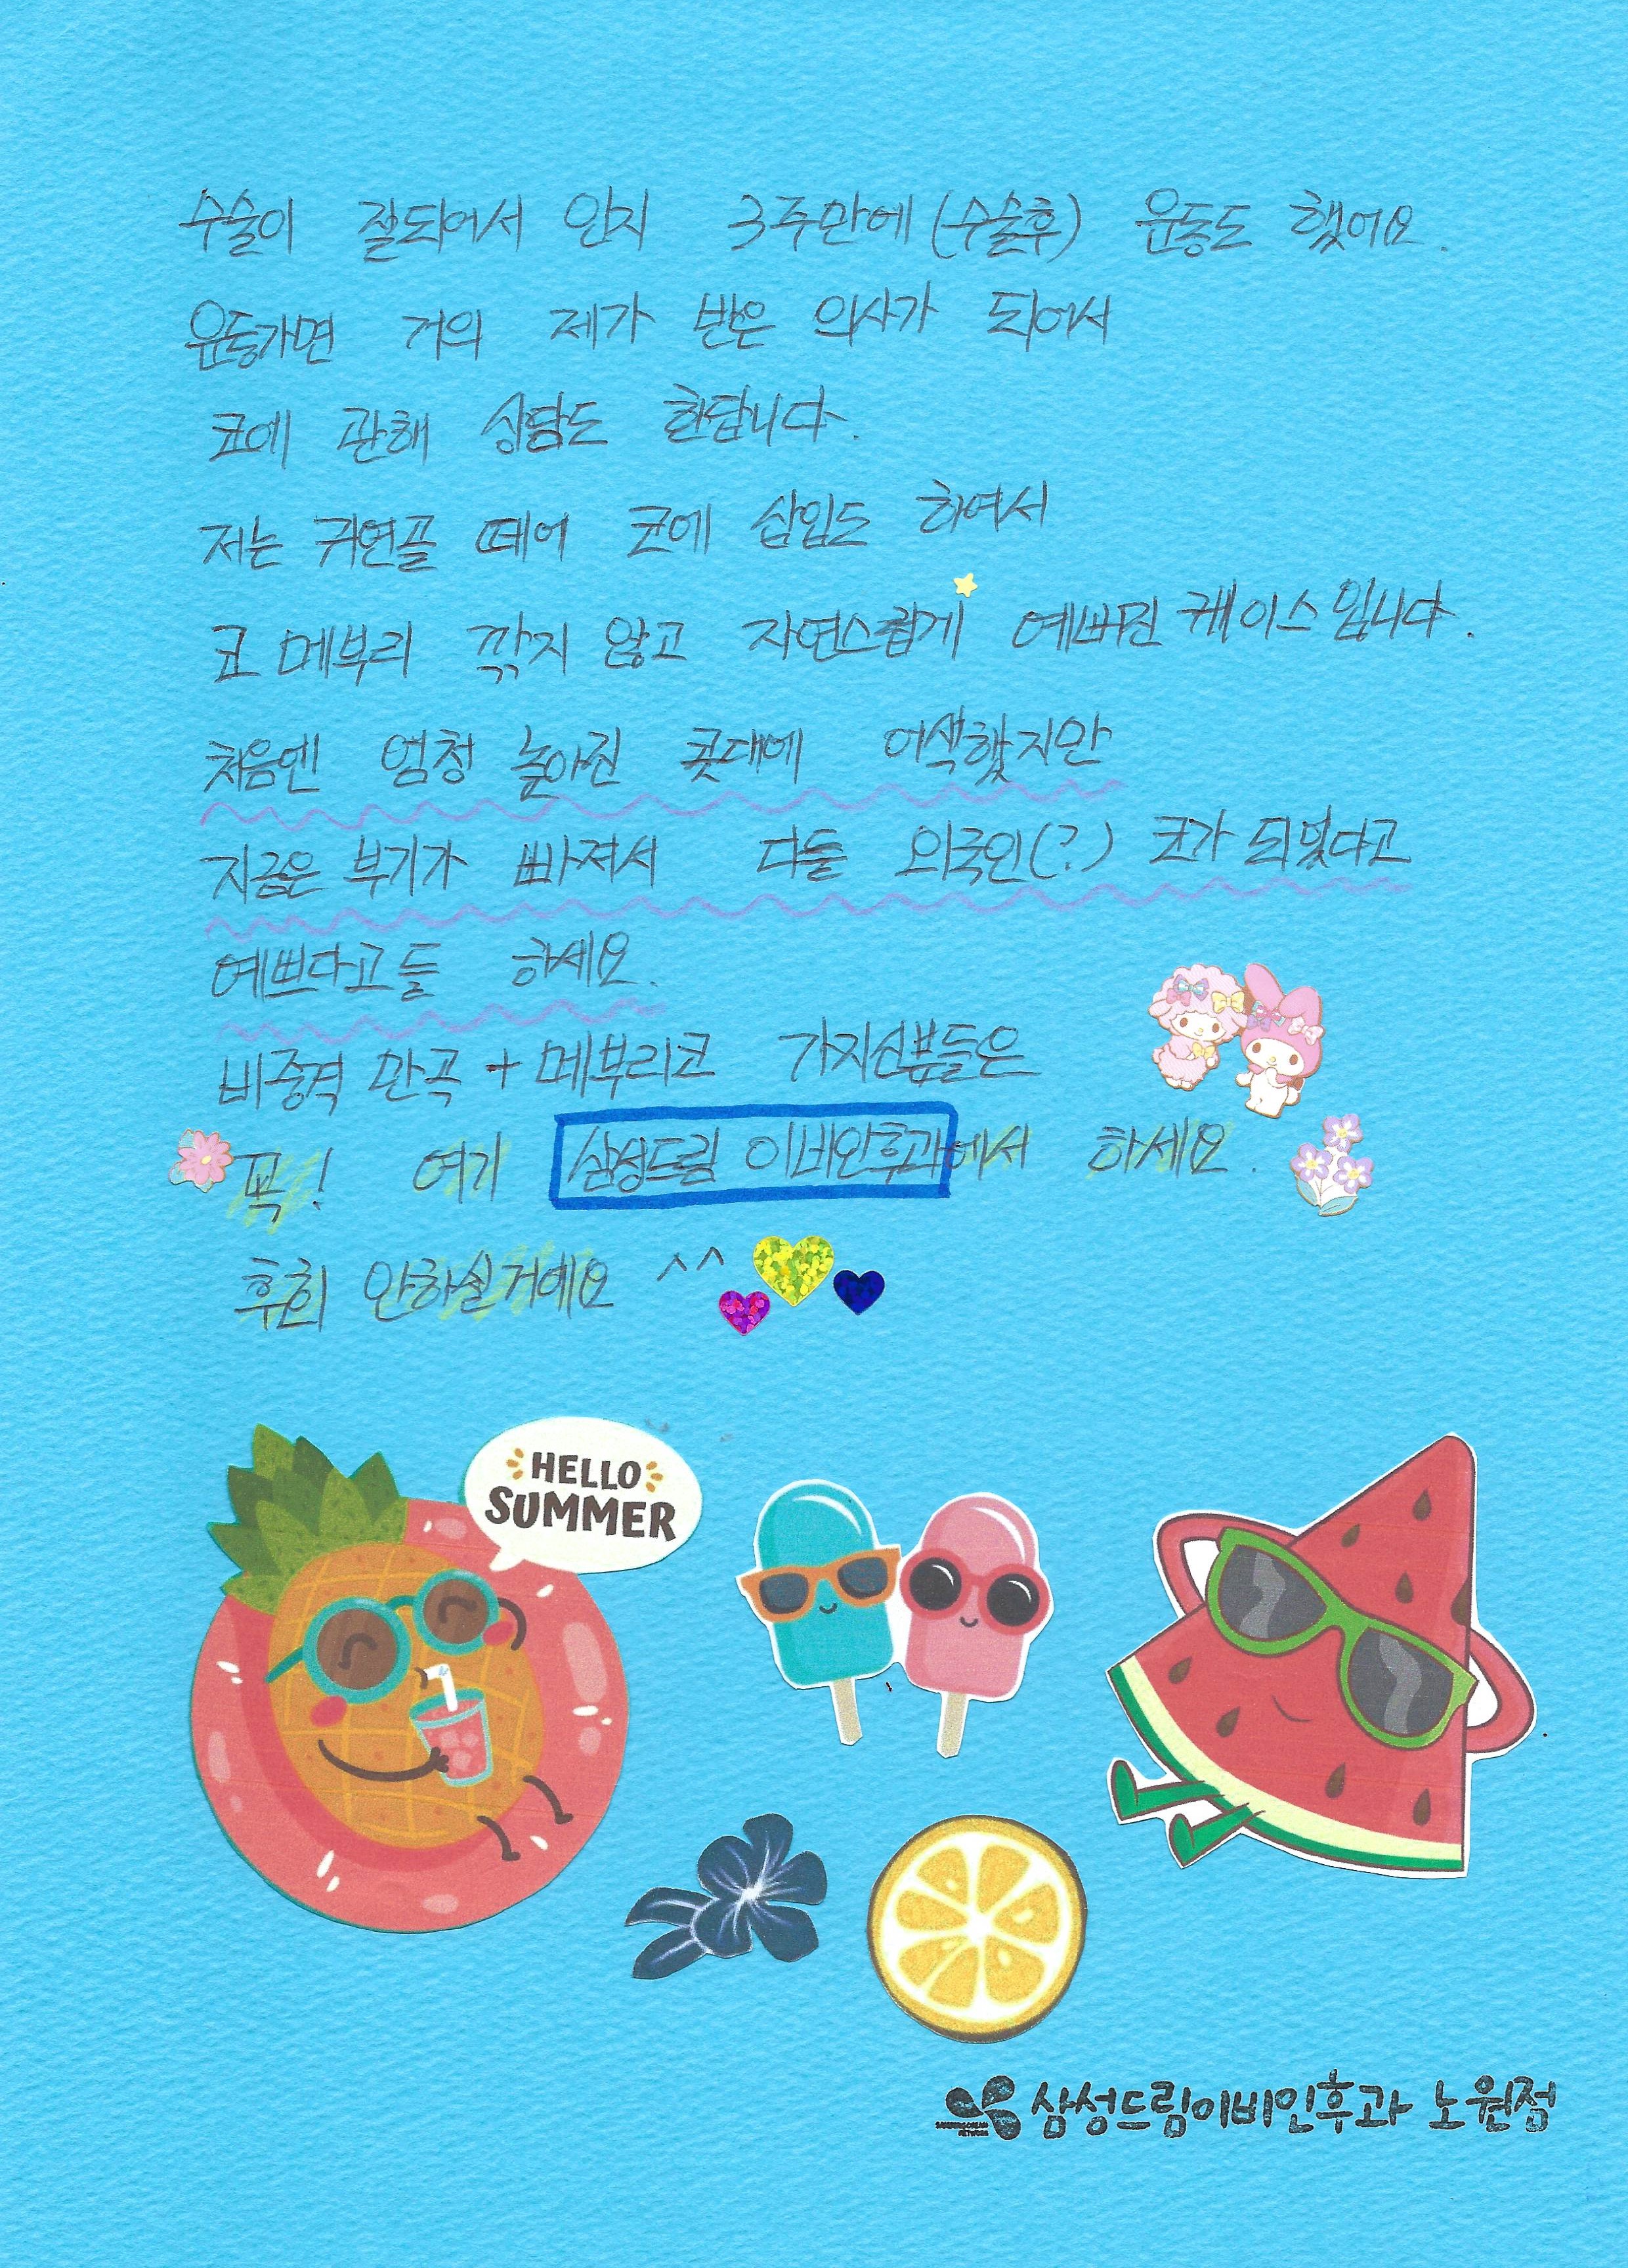 수술이 잘되어서 인지 3주만에 (수술후) 운동도 했어요.
운동가면 거의 제가 반은 의사가 되어서
코에 관해 상담도 한답니다.
저는 귀연골 떼어 코에 삽입도 하여서
코 메부리 깎지 않고 자연스럽게 예뻐진 케이스입니다.
처음엔 엄청 높아진 콧대에 어색했지만
지금은 부기가 빠져서 다들 외국인(?) 코가 되었다고
예쁘다고들 하세요.
비중격 만곡 + 메부리코 가지신분들은
꼭! 여기 삼성드림 이비인후과에서 하세요.
후회 안하실거예요 ^^
HELLO
SUMMER
삼성드림이비인후과 노원점